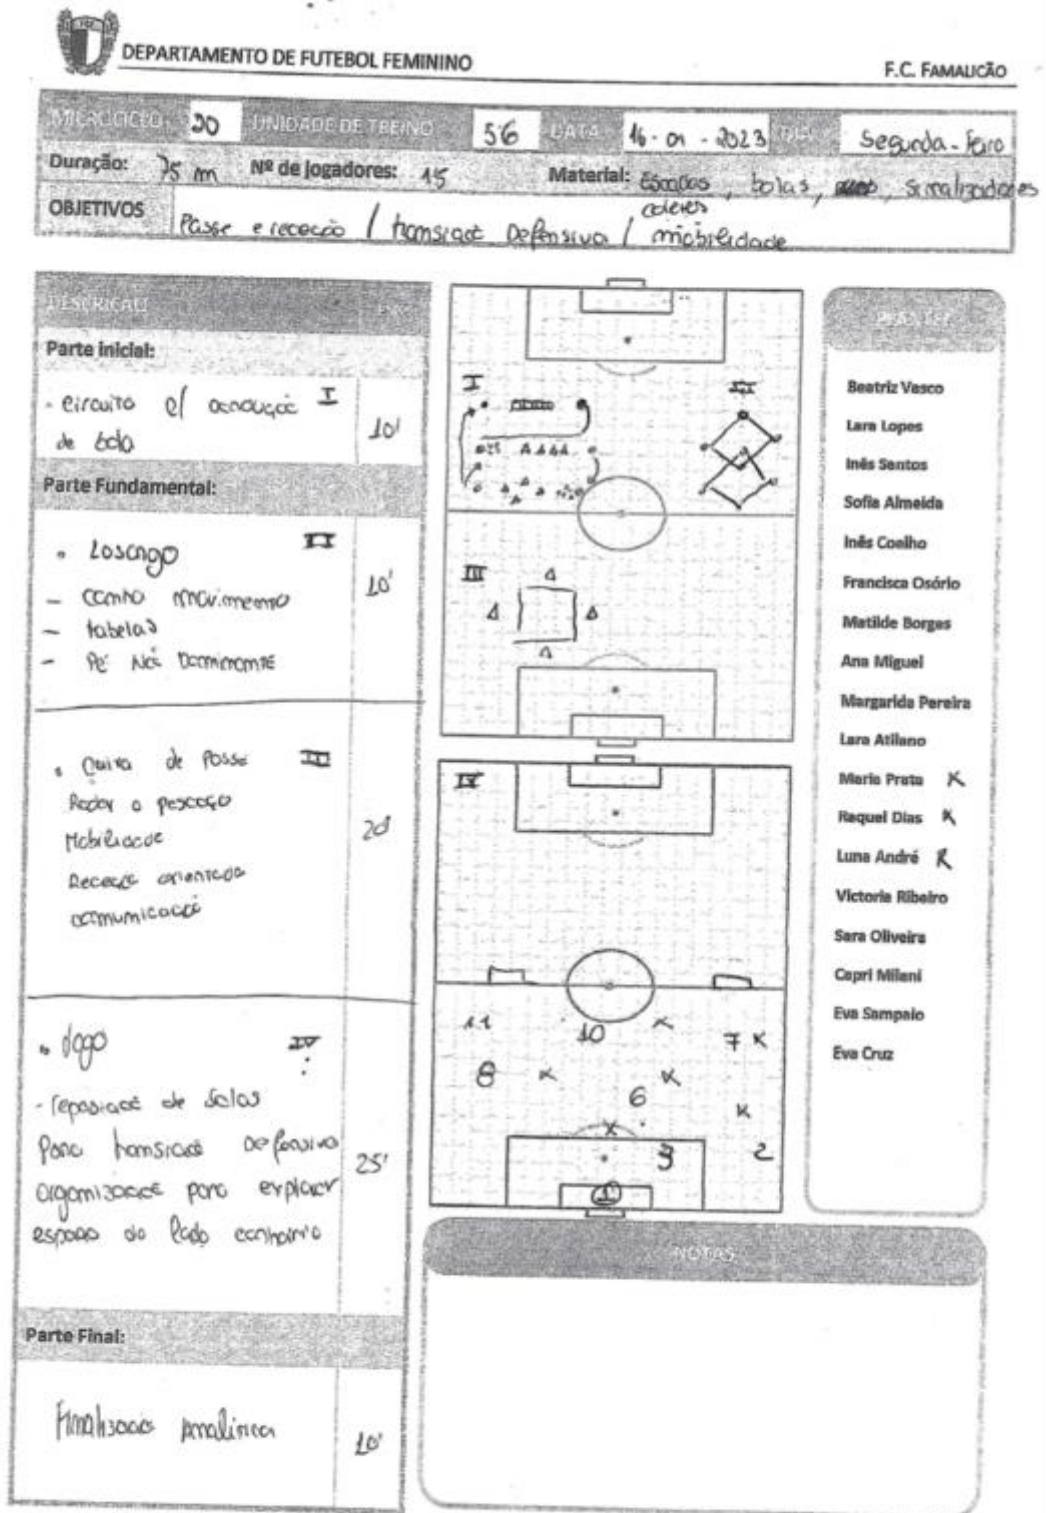 DEPARTAMENTO DE FUTEBOL FEMININO
F.C. FAMALICÃO
MICROCICLO 20 UNIDADE DE TREINO 56 DATA 16-01-2023 DIA Segunda-feira
Duração: 75 m Nº de jogadores: 15 Material: Escadas, bolas, sinalizadores
coletes
OBJETIVOS Passe e receção / transição Defensiva / mobilidade
DESCRIÇÃO
PLANTEL
Parte inicial:
- circuito c/ condução I
de bola
10'
Parte Fundamental:
• Losango II
- contra movimento
- tabelas
- Pé Não Dominante
10'
• Quina de Posse III
Rodar o pescoço
Mobilidade
Receção orientada
comunicação
20'
• Jogo IV
- reposição de bolas
para transição defensiva
organização para explorar
espaço do lado contrário
25'
Parte Final:
Finalização Analítica
10'
I
II
III
IV
11 10 7
8 6
3 2
1
Beatriz Vasco
Lara Lopes
Inês Santos
Sofia Almeida
Inês Coelho
Francisca Osório
Matilde Borges
Ana Miguel
Margarida Pereira
Lara Atilano
Maria Prata X
Raquel Dias X
Luna André X
Victoria Ribeiro
Sara Oliveira
Capri Milani
Eva Sampaio
Eva Cruz
NOTAS